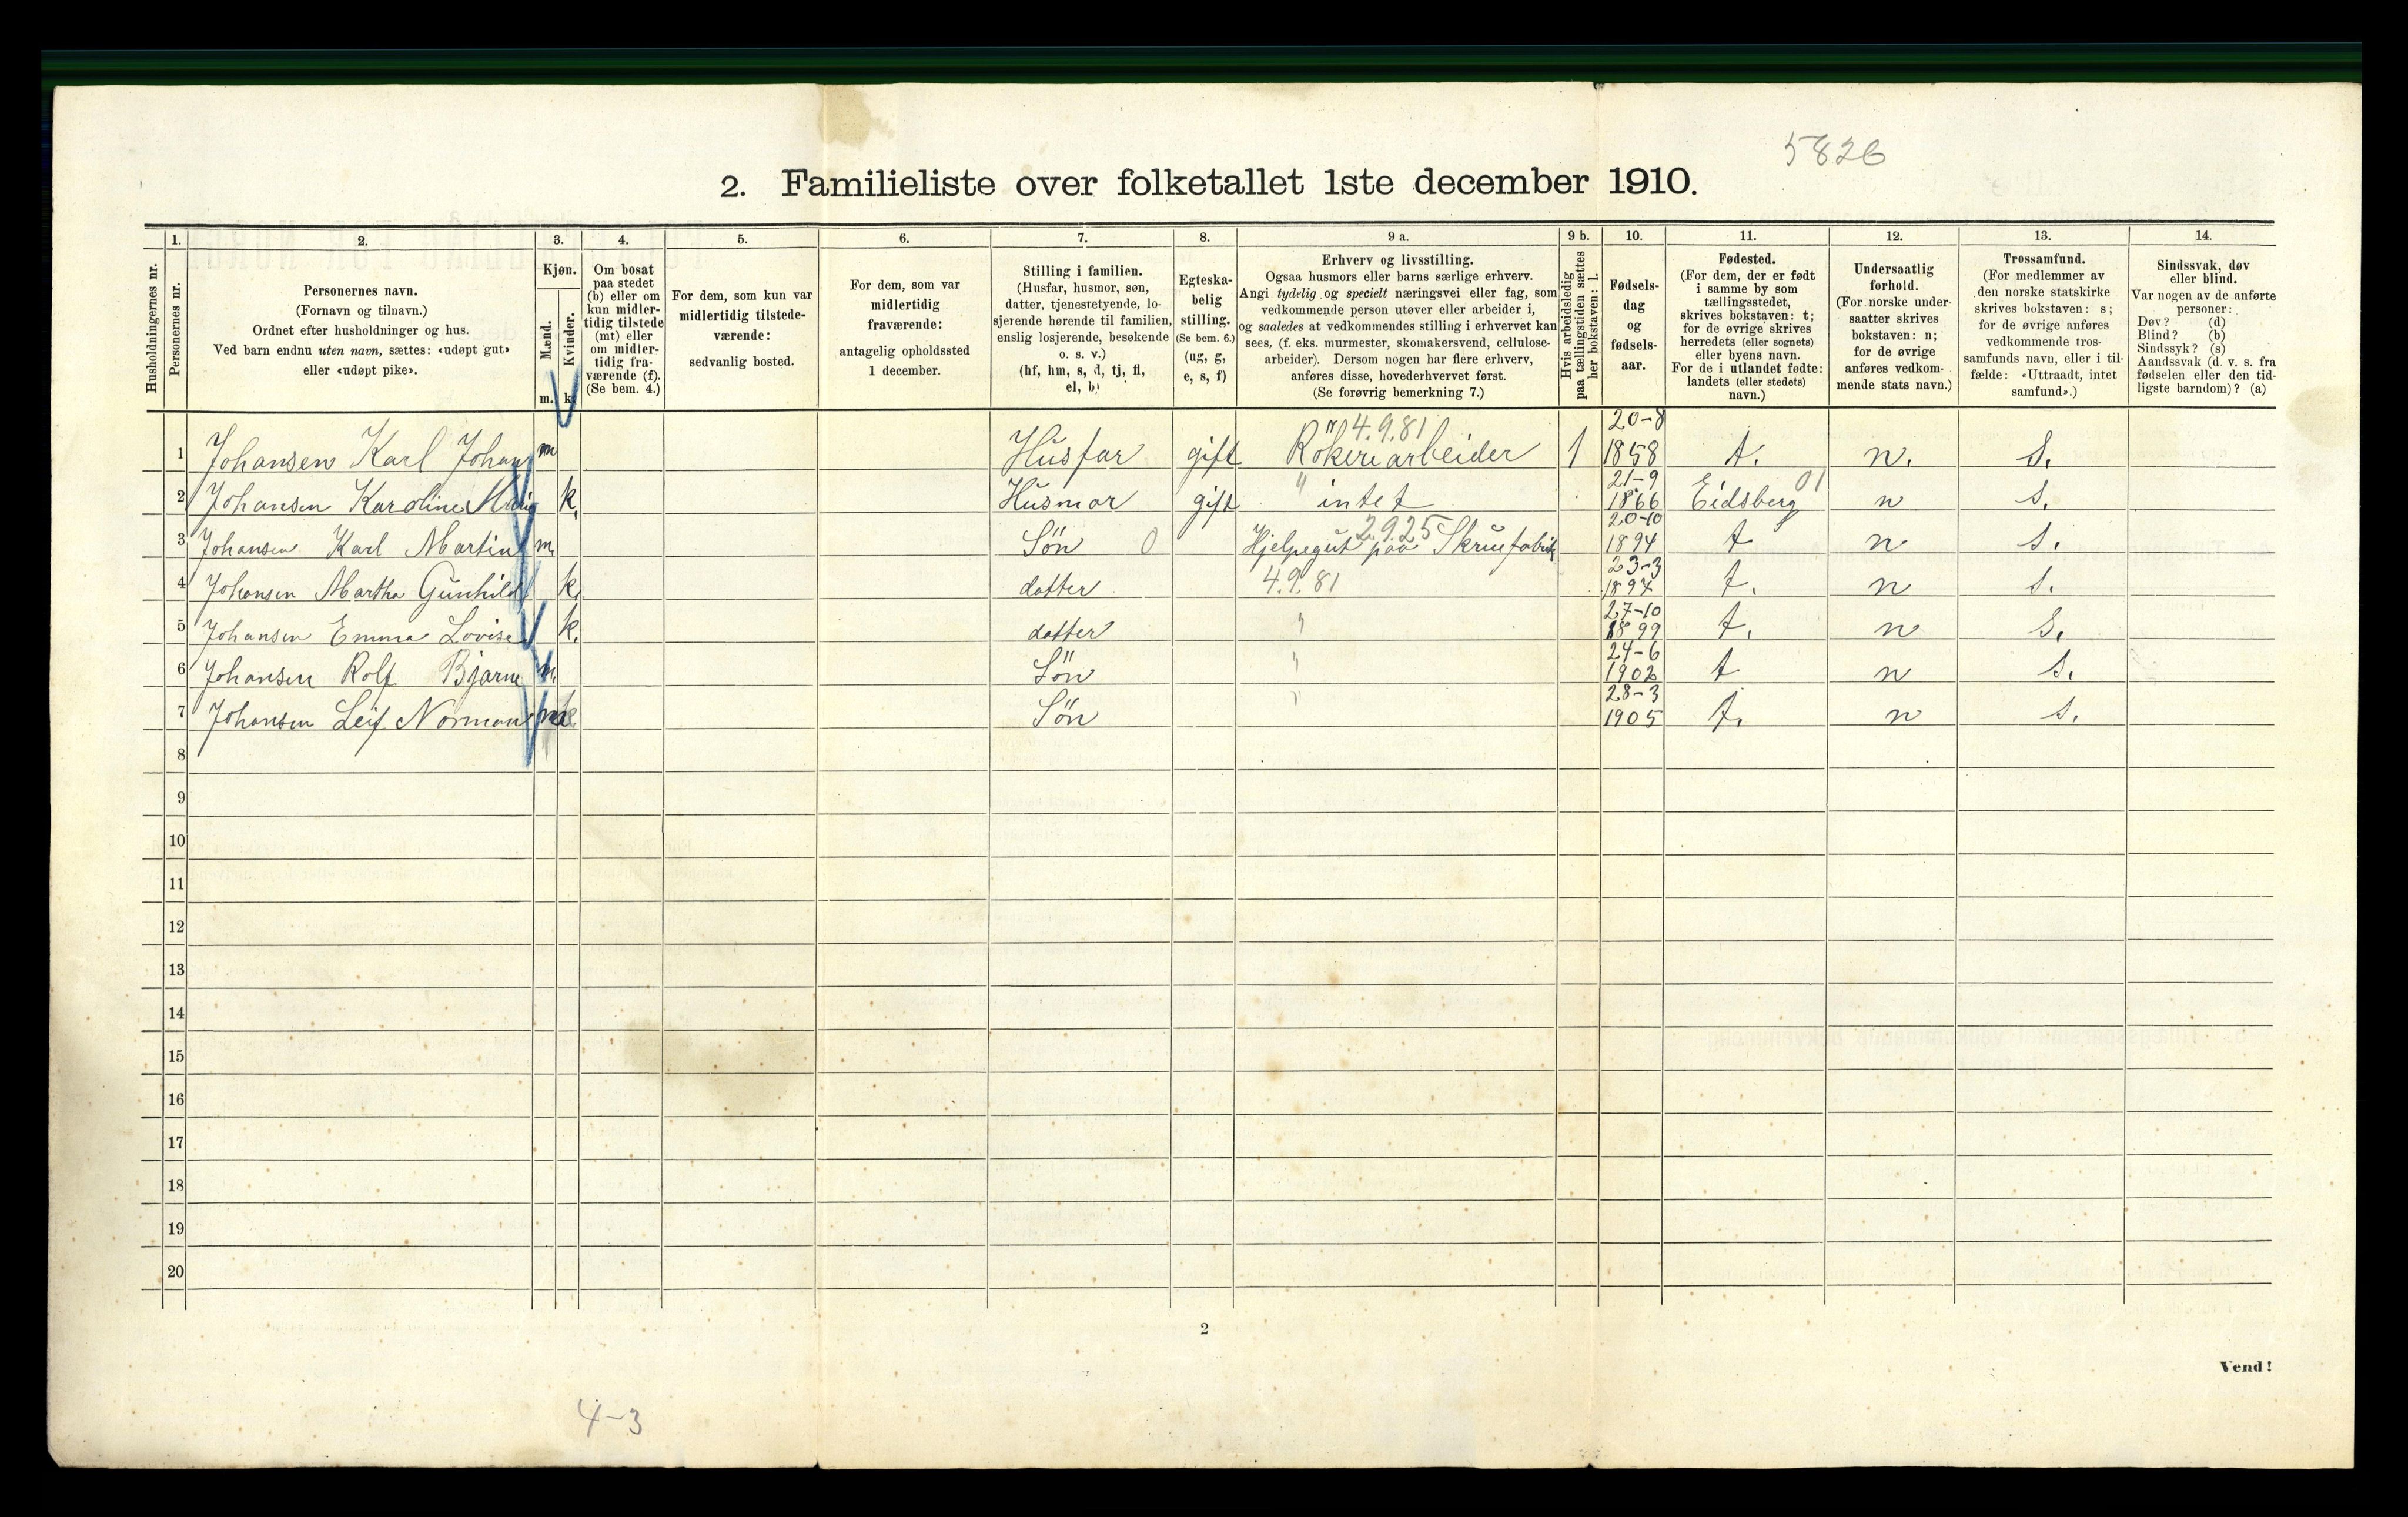 5826
2. Familieliste over folketallet 1ste december 1910.
Husholdningernes nr.
1.
Personernes nr.
2.
Personernes navn.
(Fornavn og tilnavn.)
Ordnet efter husholdninger og hus.
Ved barn endnu uten navn, sættes: «udøpt gut»
eller «udøpt pike».
3.
Kjøn.
Mænd.
Kvinder.
m. k.
4.
Om bosat
paa stedet
(b) eller om
kun midler-
tidig tilstede
(mt) eller
om midler-
tidig fra-
værende (f).
(Se bem. 4.)
5.
For dem, som kun var
midlertidig tilstede-
værende:
sedvanlig bosted.
6.
For dem, som var
midlertidig
fraværende:
antagelig opholdssted
1 december.
7.
Stilling i familien.
(Husfar, husmor, søn,
datter, tjenestetyende, lo-
sjerende hørende til familien,
enslig losjerende, besøkende
o. s. v.)
(hf, hm, s, d, tj, fl,
el, b)
8.
Egteska-
belig
stilling.
(Se bem. 6.)
(ug, g,
e, s, f)
9 a.
Erhverv og livsstilling.
Ogsaa husmors eller barns særlige erhverv.
Angi tydelig og specielt næringsvei eller fag, som
vedkommende person utøver eller arbeider i,
og saaledes at vedkommendes stilling i erhvervet kan
sees, (f. eks. murmester, skomakersvend, cellulose-
arbeider). Dersom nogen har flere erhverv,
anføres disse, hovederhvervet først.
(Se forøvrig bemerkning 7.)
9 b.
Hvis arbeidsledig
paa tællingstiden sættes
her bokstaven: l.
10.
Fødsels-
dag
og
fødsels-
aar.
11.
Fødested.
(For dem, der er født
i samme by som
tællingsstedet,
skrives bokstaven: t;
for de øvrige skrives
herredets (eller sognets)
eller byens navn.
For de i utlandet fødte:
landets (eller stedets)
navn.)
12.
Undersaatlig
forhold.
(For norske under-
saatter skrives
bokstaven: n;
for de øvrige
anføres vedkom-
mende stats navn.)
13.
Trossamfund.
(For medlemmer av
den norske statskirke
skrives bokstaven: s;
for de øvrige anføres
vedkommende tros-
samfunds navn, eller i til-
fælde: «Uttraadt, intet
samfund».)
14.
Sindssvak, døv
eller blind.
Var nogen av de anførte
personer:
Døv? (d)
Blind? (b)
Sindssyk? (s)
Aandssvak (d. v. s. fra
fødselen eller den tid-
ligste barndom)? (a)
4.9.81 20-8
1 Johansen Karl Johan m Husfar gift Rökeriarbeider 1 1858 t. n. s.
21-9 01
2 Johansen Karoline k. Husmor gift " intet 1866 Eidsberg n s.
2.9.25 20-10
3 Johansen Karl Martin m. Sön 0 Hjelpegut paa Skruefabrik 1894 t n s.
23-3
4 Johansen Martha Gunhild k. datter 4.9.81 1897 t. n s.
27-10
5 Johansen Emma Lovise k. datter " 1899 t. n s.
24-6
6 Johansen Rolf Bjarne m. Sön " 1902 t n s.
28-3
7 Johansen Leif Norman m Sön " 1905 t. n s.
8
9
10
11
12
13
14
15
16
17
18
19
20
2
Vend!
4-3